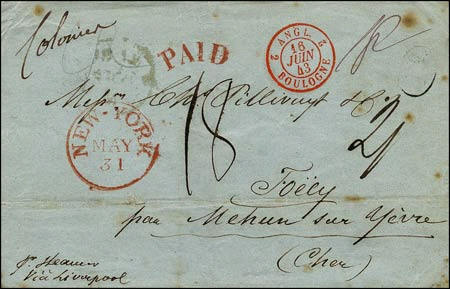 PAID
ANGL. 2
2 BOULOGNE
16
JUIN
43
Messrs Chs Pillivuyt & Co.
NEW-YORK
MAY
31
18
Foëcy
par Mehun sur Yèvre
(Cher)
pr. Steamer
Via Liverpool